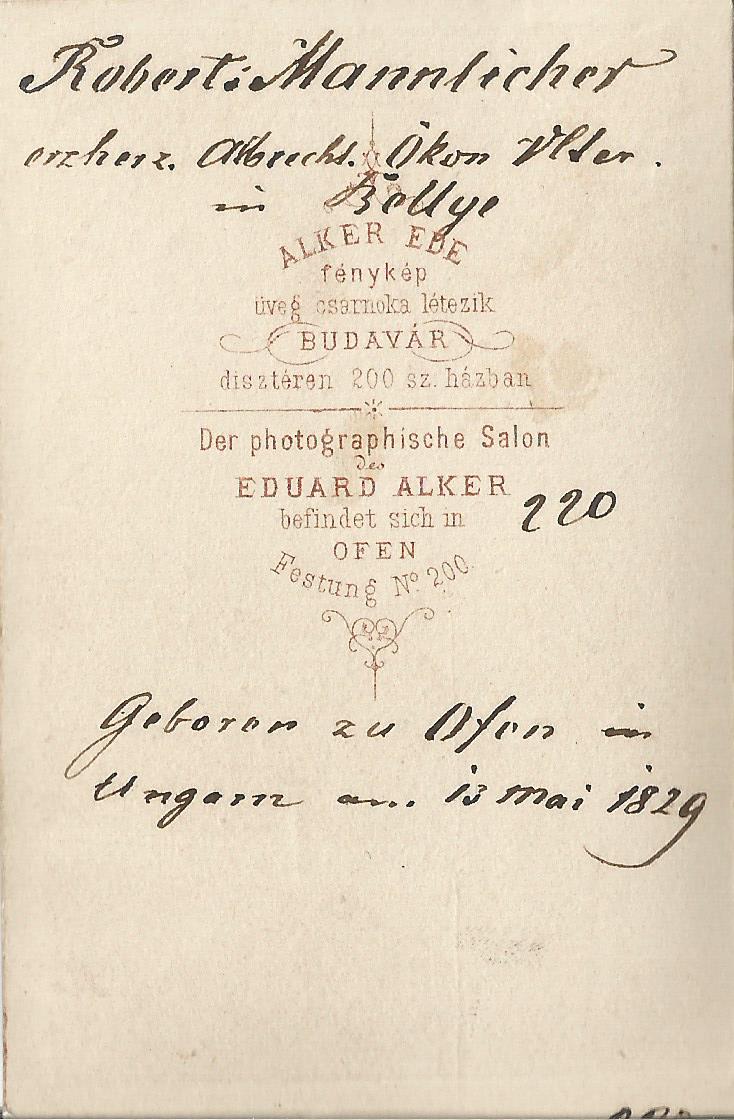 Robert Mannlicher
erzherz. Albrecht. Ökon Vlter.
in Bellye
ALKER EDE
fénykép
üveg csarnoka létezik
BUDAVÁR
disztéren 200 sz. házban
Der photographische Salon
des
EDUARD ALKER
befindet sich in
220
OFEN
Festung No. 200.
Geboren zu Ofen in
Ungarn am. 13 Mai 1829